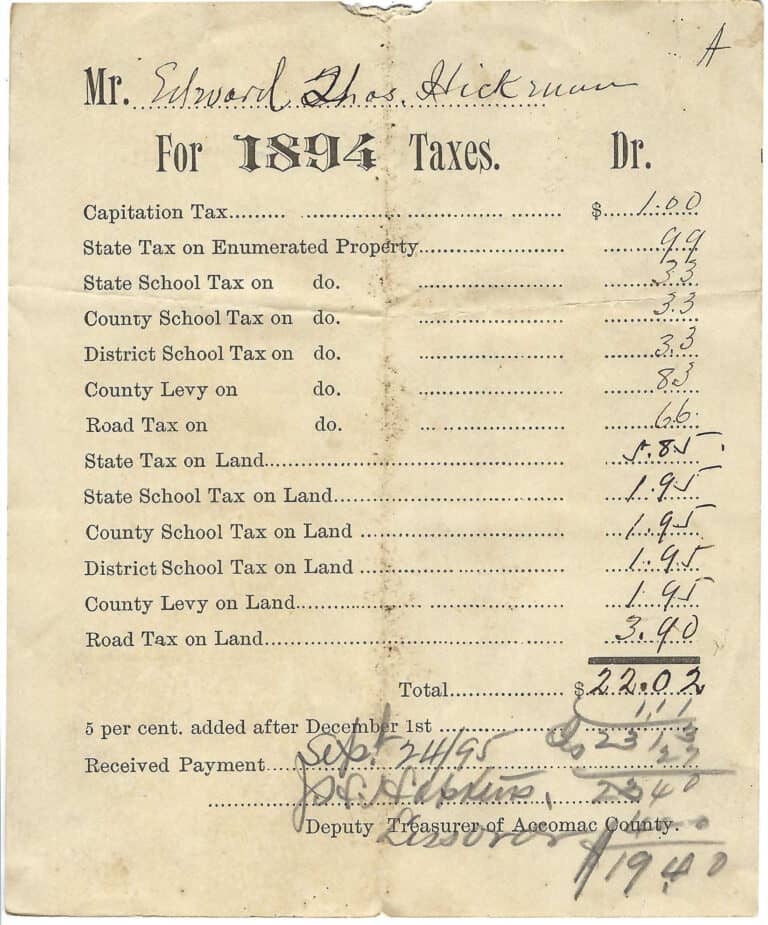 A
Mr. Edward Thos. Hickman
For 1894 Taxes. Dr.
Capitation Tax $ 1.00
State Tax on Enumerated Property 99
State School Tax on do. 33
County School Tax on do. 33
District School Tax on do. 33
County Levy on do. 83
Road Tax on do. 66
State Tax on Land 5.85
State School Tax on Land 1.95
County School Tax on Land 1.95
District School Tax on Land 1.95
County Levy on Land 1 95
Road Tax on Land 3.90
Total $ 22.02
5 per cent. added after December 1st 1 11
23 13
Received Payment Sept 24/95 27
Hopkins, 23 40
Deputy Treasurer of Accomac County.
19 40